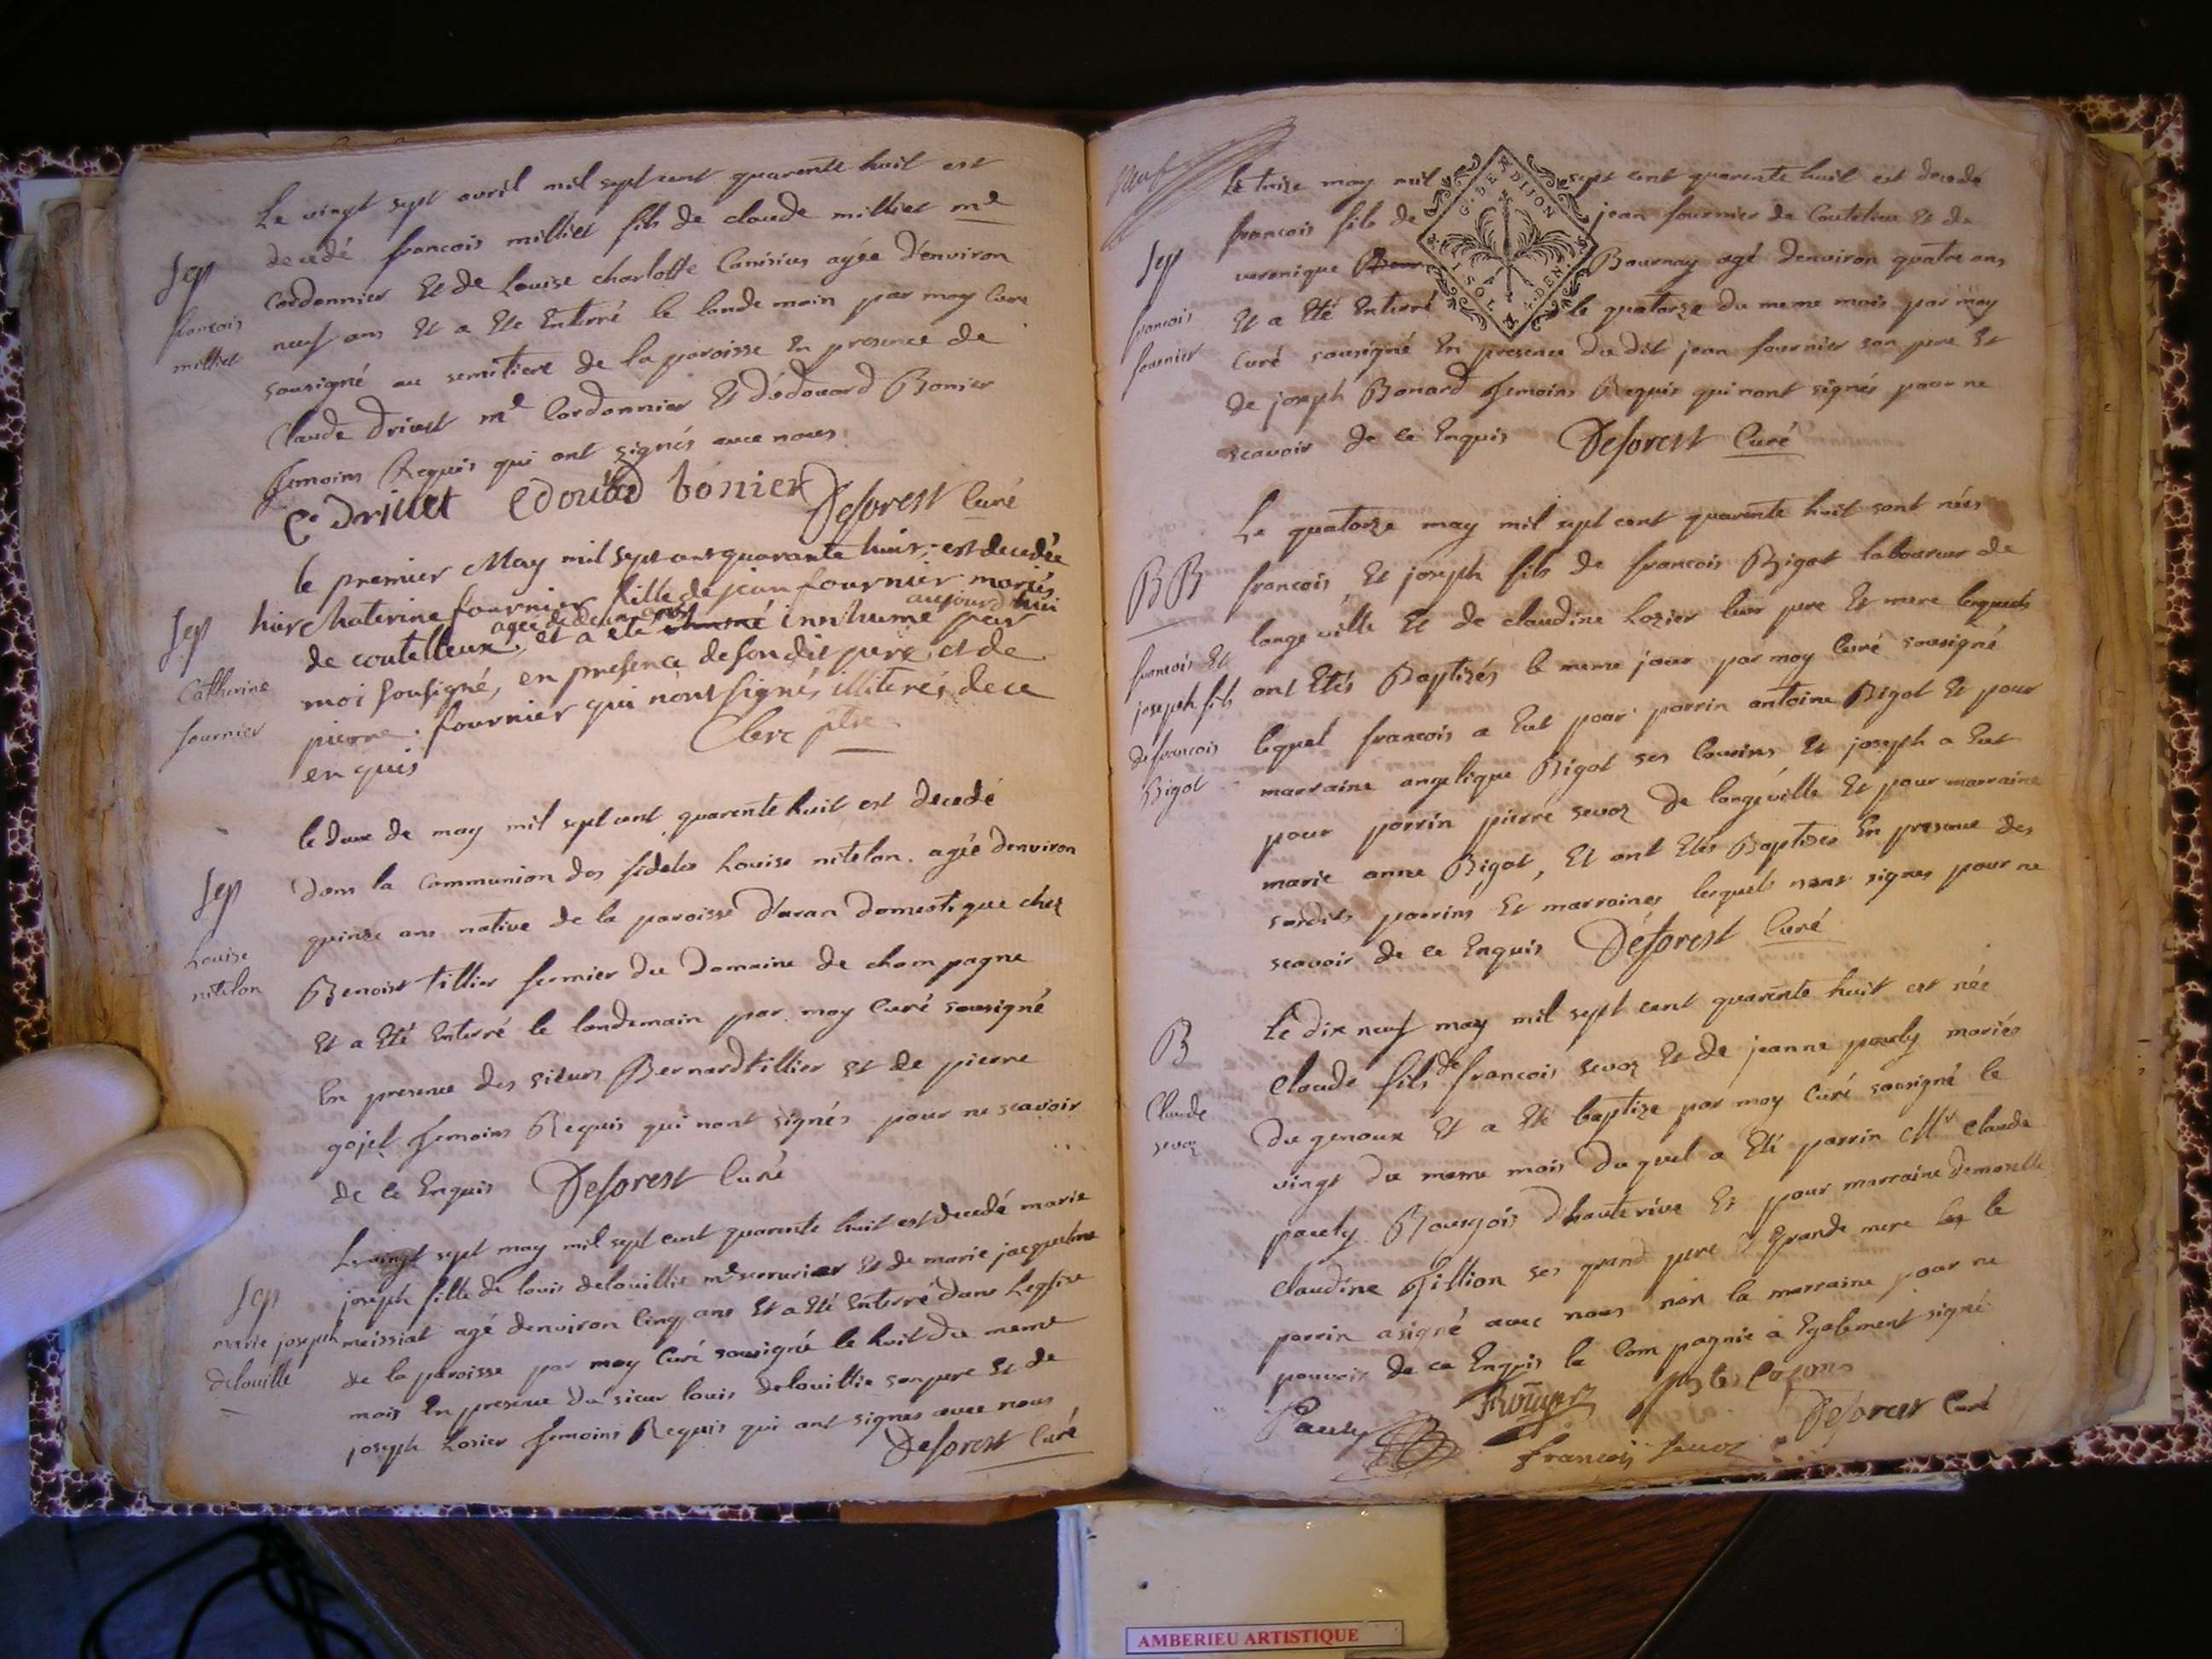 Le vingt sept avril mil sept cent quarente huit est
decedé francois milliet fils de claude milliet me
Cordonnier Et de Louise charlotte agée d'environ
neuf ans Et a Eté Enterré le landemain par moy Curé
sousigné au semitiere de la paroisse En presence de
Claude Driuet me Cordonnier Et d'Edouard Bonier
Temoins Requis qui ont signés avec nous
Sep
francois
milliet
C. Driuet Edouard bonier Deforest Curé
le premier May mil sept cent quarante huit, est decedée
hier Chaterine fournier fille de jean fournier mariés
agée de deux ans aujourd'hui
de coutelleux, et a ete innhumé par
moi sousigné, en presence de son dit pere et de
pierre fournier qui n'ont signés illiterés de ce
enquis Clerc ptre
Sep
Catherine
fournier
le deux de may mil sept cent quarente huit est decedé
dans la Communion des fideles Louise nitelon agée denviron
quinze ans native de la paroisse d'aran domestique chez
Benoist tillier fermier du Domaine de champagne
Et a Eté Enterré le landemain par moy Curé sousigné
En presence des sieurs Bernard tillier et de pierre
gojet Temoins Requis qui nont signés pour ne scavoir
de ce Enquis Deforest Curé
Sep
Louise
nitelon
Le vingt sept may mil sept cent quarente huit est decedé marie
joseph fille de louis delouillie me serrurier Et de marie jacqueline
meissiat agé denviron Cinq ans Et a Eté Enterré dans Leglise
de la paroisse par moy Curé sousigné le huit du meme
mois En presence du sieur louis delouillie son pere Et de
joseph Losier Temoins Requis qui ont signes avec nous
Deforest Curé
Sep
marie joseph
delouille
neuf
Le treize may mil sept cent quarente huit est decedé
francois fils de jean fournier de Coutelieu Et de
veronique Bournay agé denviron quatre ans
Et a Eté Enterré le quatorze du meme mois par moy
Curé sousigné En presence du dit jean fournier son pere Et
de joseph Bonard Temoins Requis qui nont signés pour ne
scavoir de ce Enquis Deforest Curé
G. DE DIJON
Sep
francois
fournier
Le quatorze may mil sept cent quarente huit sont nées
francois, Et joseph fils de francois Bigot laboureur de
longeville Et de claudine Lozier leur pere Et mere lesquels
ont Etés Baptizés le meme jour par moy Curé sousigné
lequel francois a Eut pour parrin antoine Bigot Et pour
marraine angelique Bigot ses Cousins Et joseph a Eut
pour parrin pierre sevoz de longeville Et pour marraine
marie anne Bigot, Et ont Etés Baptises En presence des
susdits parrins Et marraines lesquels nont signes pour ne
scavoir de ce Enquis Deforest Curé
BB
francois Et
joseph fils
de francois
Bigot
Le dix neuf may mil sept cent quarente huit est née
Claude fils de francois sevoz Et de jeanne pauly mariés
du genoux Et a Eté baptize par moy Curé sousigné le
vingt du meme mois duquel a Eté parrin Mr Claude
pauly Bourgois dhauterive Et pour marraine demoselle
Claudine Tillion ses grand pere Et grande mere le
parrin a signé avec nous non la marraine pour ne
pouvoir de ce Enquis la Compagnie a Egalement signé
B
Claude
sevoz
Pauly francois sevoz Deforest Curé
AMBERIEU ARTISTIQUE